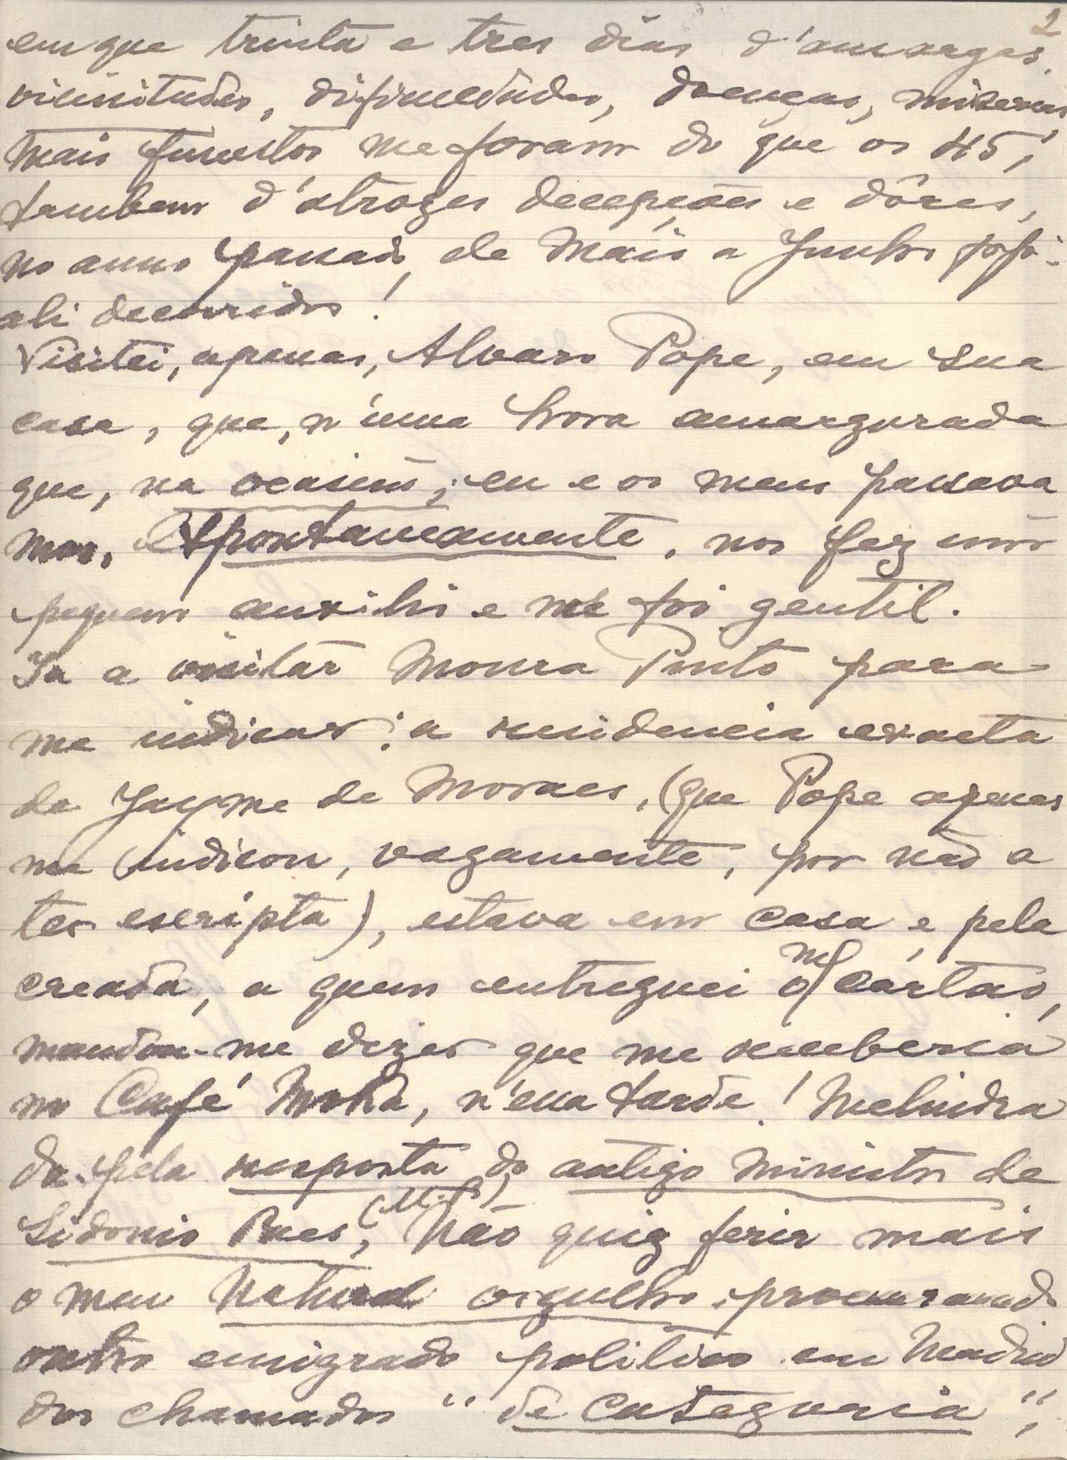 2
em que trinta e tres dias d'amargas
vicissitudes, dificuldades, doenças, miserias
mais funestos me foram do que os 45,
tambem d'atrozes decepções e dôres,
no anno passado, de Maio a Junho
ali decorridos!
Visitei, apenas, Alvaro Pope, em sua
casa, que, n'uma hora amargurada
que, na ocasião, eu e os meus passava
mos, espontaneamente, nos fez um
pequeno auxilio e me foi gentil.
Ia a visitar Moura Pinto para
me indicar a residencia exacta
de Jayme de Moraes, (que Pope apenas
me indicou, vagamente, por não a
ter escripta), estava em casa e, pela
creada, a quem entreguei o m/ cartão,
mandou-me dizer que me receberia
no Café, n'essa tarde! Melindra
do pela resposta do antigo ministro de
Sidonio Paes, não quiz ferir mais
o meu natural orgulho procurando
outro emigrado politico em Madrid
dos chamados "de categoria",